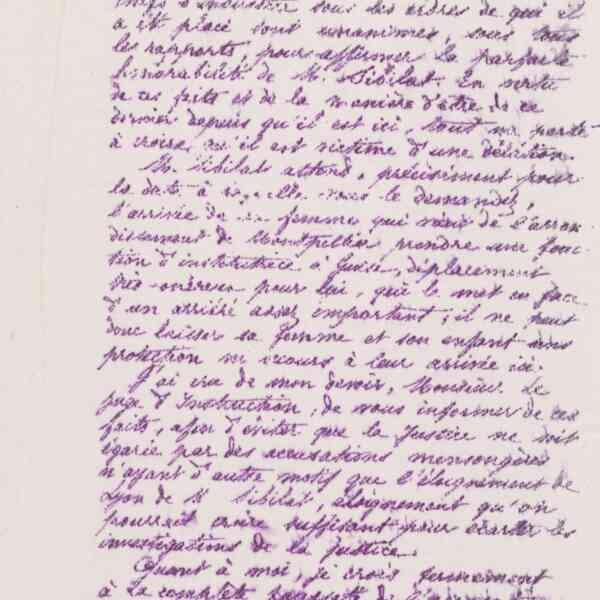 sous les ordres de qui il
a été placé sont unanimes, sous tous
les rapports, pour affirmer la parfaite
honorabilité de M. Sibilat. En vertu
de ces faits et de la manière d'être de ce
dernier depuis qu'il est ici, tout me porte
à croire qu'il est victime d'une délation.
M. Sibilat attend, précisément pour
la date à laquelle vous le demandez,
l'arrivée de sa femme qui vient de l'arron-
dissement de Montpellier prendre une fonc-
tion d'institutrice à Guise, déplacement
très onéreux pour lui, qui le met en face
d'un arriéré assez important; il ne peut
donc laisser sa femme et son enfant sans
protection ni secours à leur arrivée ici.
J'ai cru de mon devoir, Monsieur le
Juge d'Instruction, de vous informer de ces
faits, afin d'éviter que la Justice ne soit
égarée par des accusations mensongères
n'ayant d'autre motif que l'éloignement de
Lyon de M. Sibilat, éloignement qu'on
pourrait croire suffisant pour écarter les
investigations de la justice.
Quant à moi, je crois fermement
à la complète